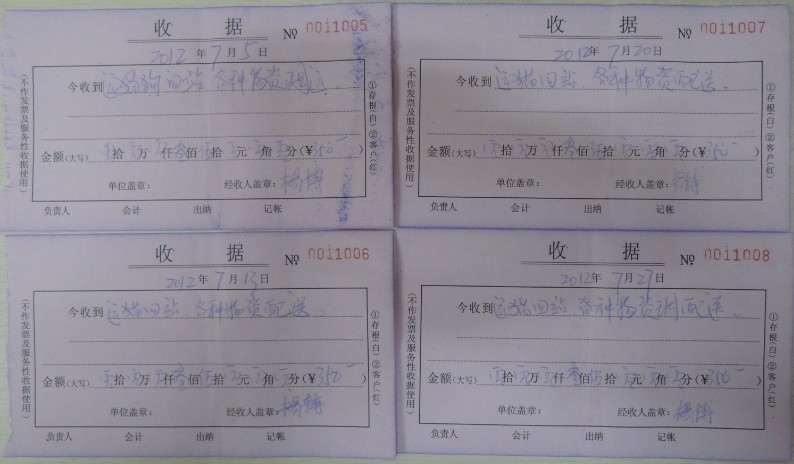 收 据 № 0011005
2012 年 7 月 5 日
今收到 运猫狗回站 各种物资调运
金额(大写) 零 拾 零 万 零 仟 叁 佰 伍 拾 零 元 零 角 零 分(¥ 350—
单位盖章: 经收人盖章: 杨博
负责人 会计 出纳 记帐
(不作发票及服务性收据使用)
①存根(白) ②客户(红)
收 据 № 0011007
2012 年 7 月 20 日
今收到 运猫回站 各种物资配送.
金额(大写) 零 拾 零 万 零 仟 叁 佰 伍 拾 零 元 零 角 零 分(¥ 350—
单位盖章: 经收人盖章: 杨博
负责人 会计 出纳 记帐
(不作发票及服务性收据使用)
①存根(白) ②客户(红)
收 据 № 0011006
2012 年 7 月 13 日
今收到 运猫回站 各种物资配送.
金额(大写) 零 拾 零 万 零 仟 叁 佰 伍 拾 零 元 零 角 零 分(¥ 350—
单位盖章: 经收人盖章: 杨博
负责人 会计 出纳 记帐
(不作发票及服务性收据使用)
①存根(白) ②客户(红)
收 据 № 0011008
2012 年 7 月 27 日
今收到 运猫回站 各种物资调配送.
金额(大写) 零 拾 零 万 零 仟 叁 佰 伍 拾 零 元 零 角 零 分(¥ 350—
单位盖章: 经收人盖章: 杨博
负责人 会计 出纳 记帐
(不作发票及服务性收据使用)
①存根(白) ②客户(红)